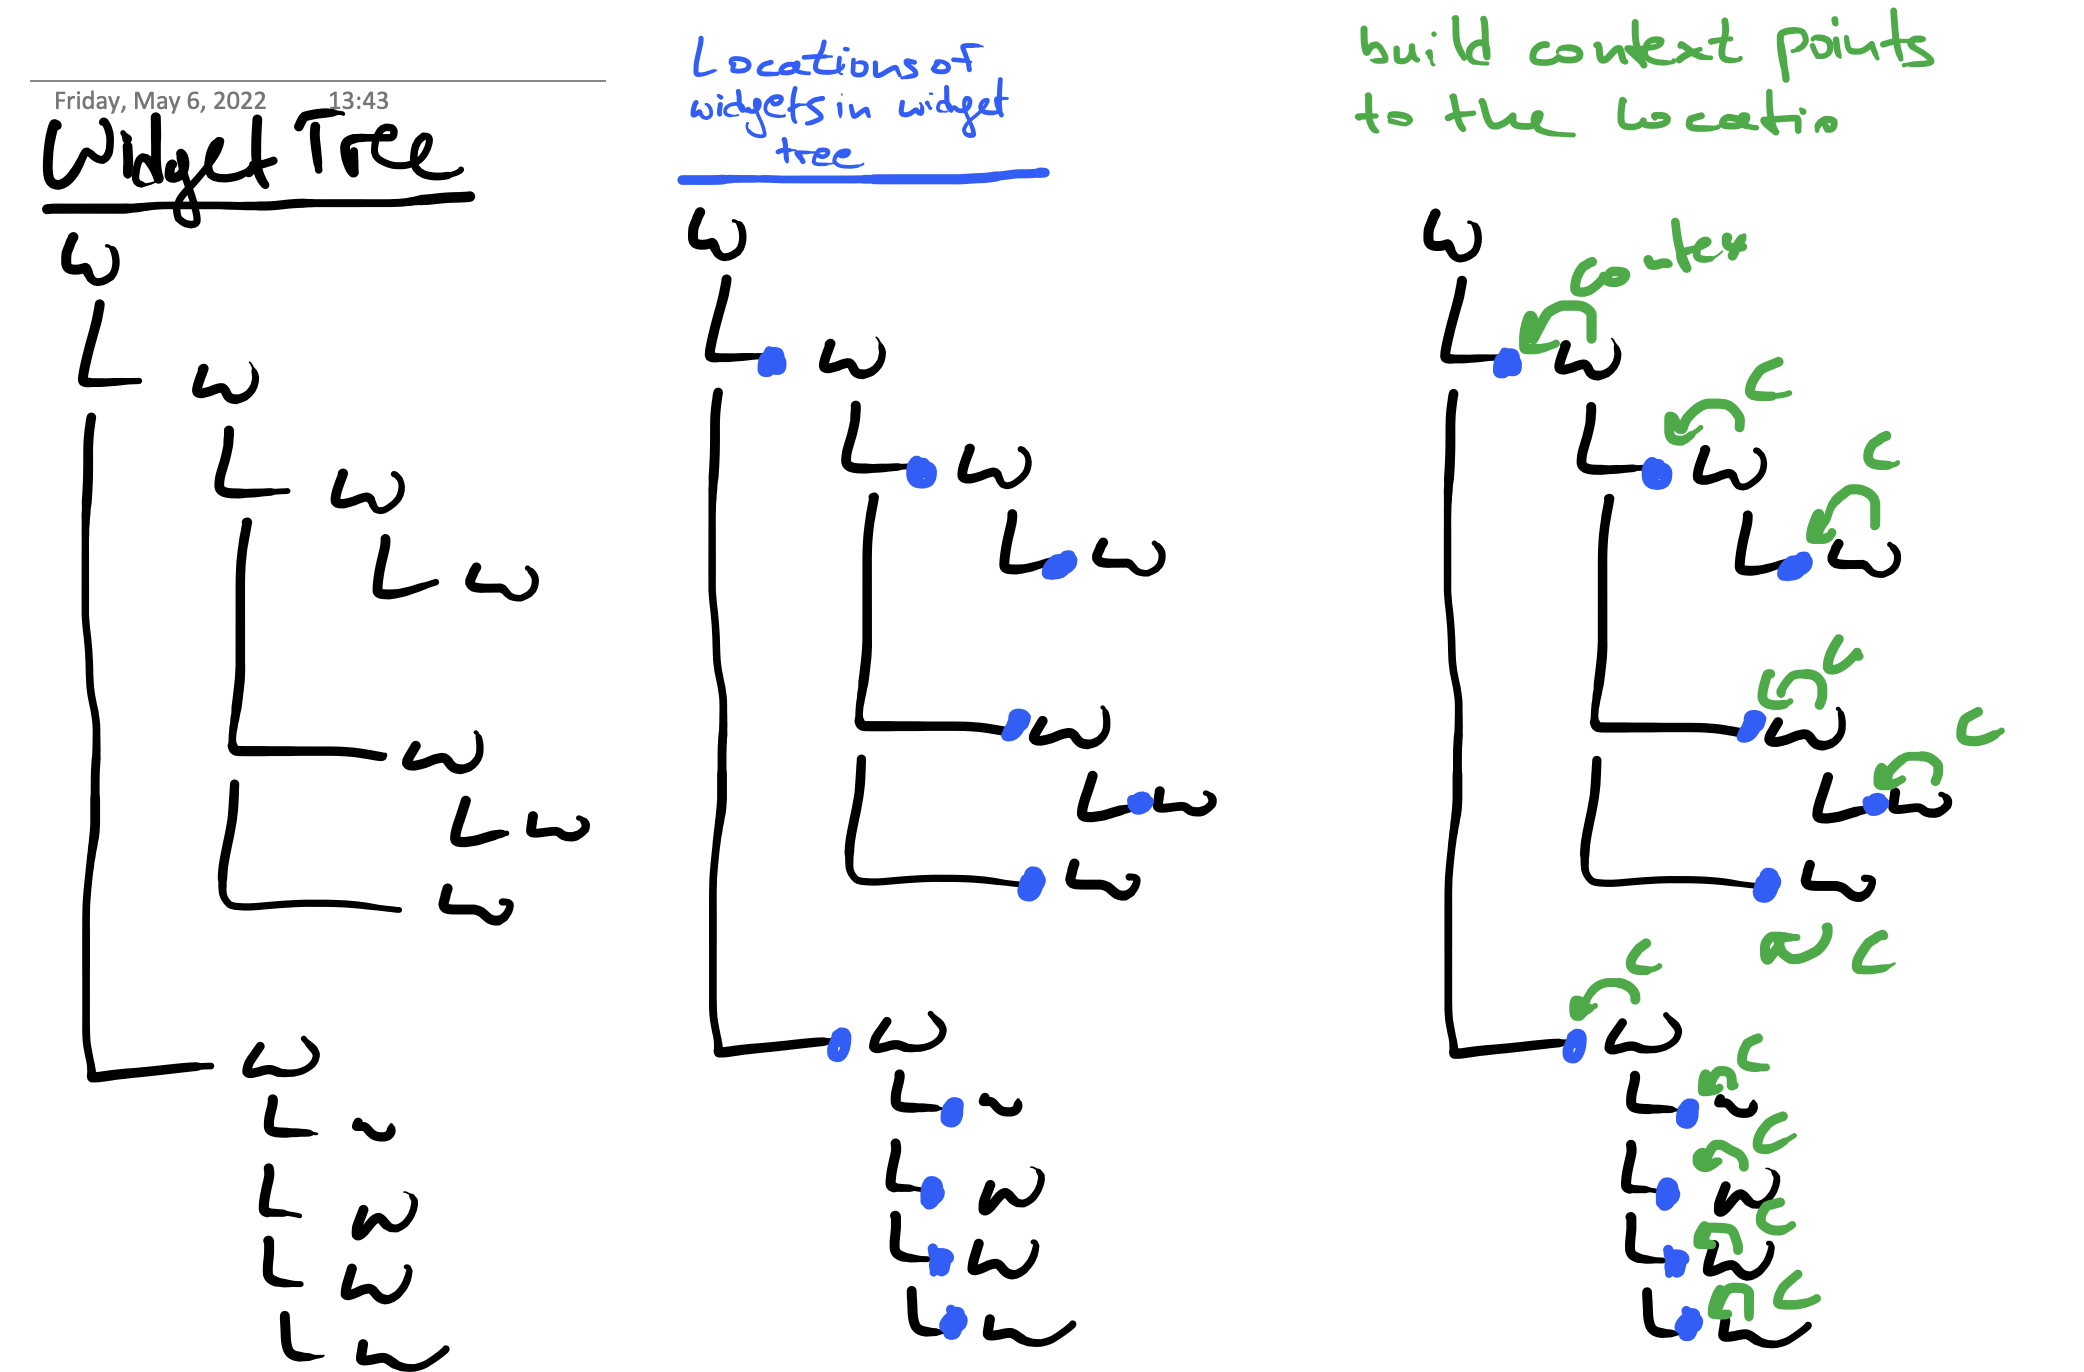 Friday, May 6, 2022 13:43
Widget Tree
W
W
W
W
W
W
W
W
W
W
W
Locations of
widgets in widget
tree
W
W
W
W
W
W
W
W
W
W
W
build context points
to the Locatio
W
contex
W
C
W
C
W
C
W
C
W
W
C
C
W
C
C
W
C
W
C
W